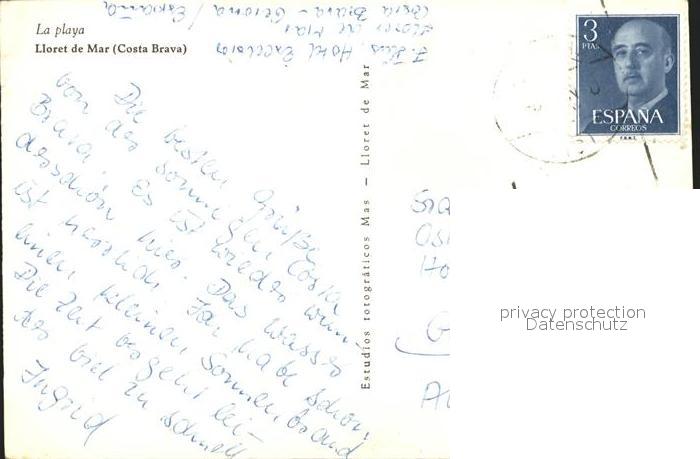 La playa
Lloret de Mar (Costa Brava)
Hotel Excelsior
Lloret de Mar
Costa Brava - Gerona / España
Die besten Grüße
von der sonnigen Costa
Brava. Es ist
hier. Das Wasser
ist herrlich. Ich habe schon
einen kleinen Sonnenbrand
Die Zeit vergeht lei-
der viel zu schnell
Ingrid
Estudios fotográficos Mas - Lloret de Mar
3
PTAS
ESPAÑA
CORREOS
privacy protection
Datenschutz